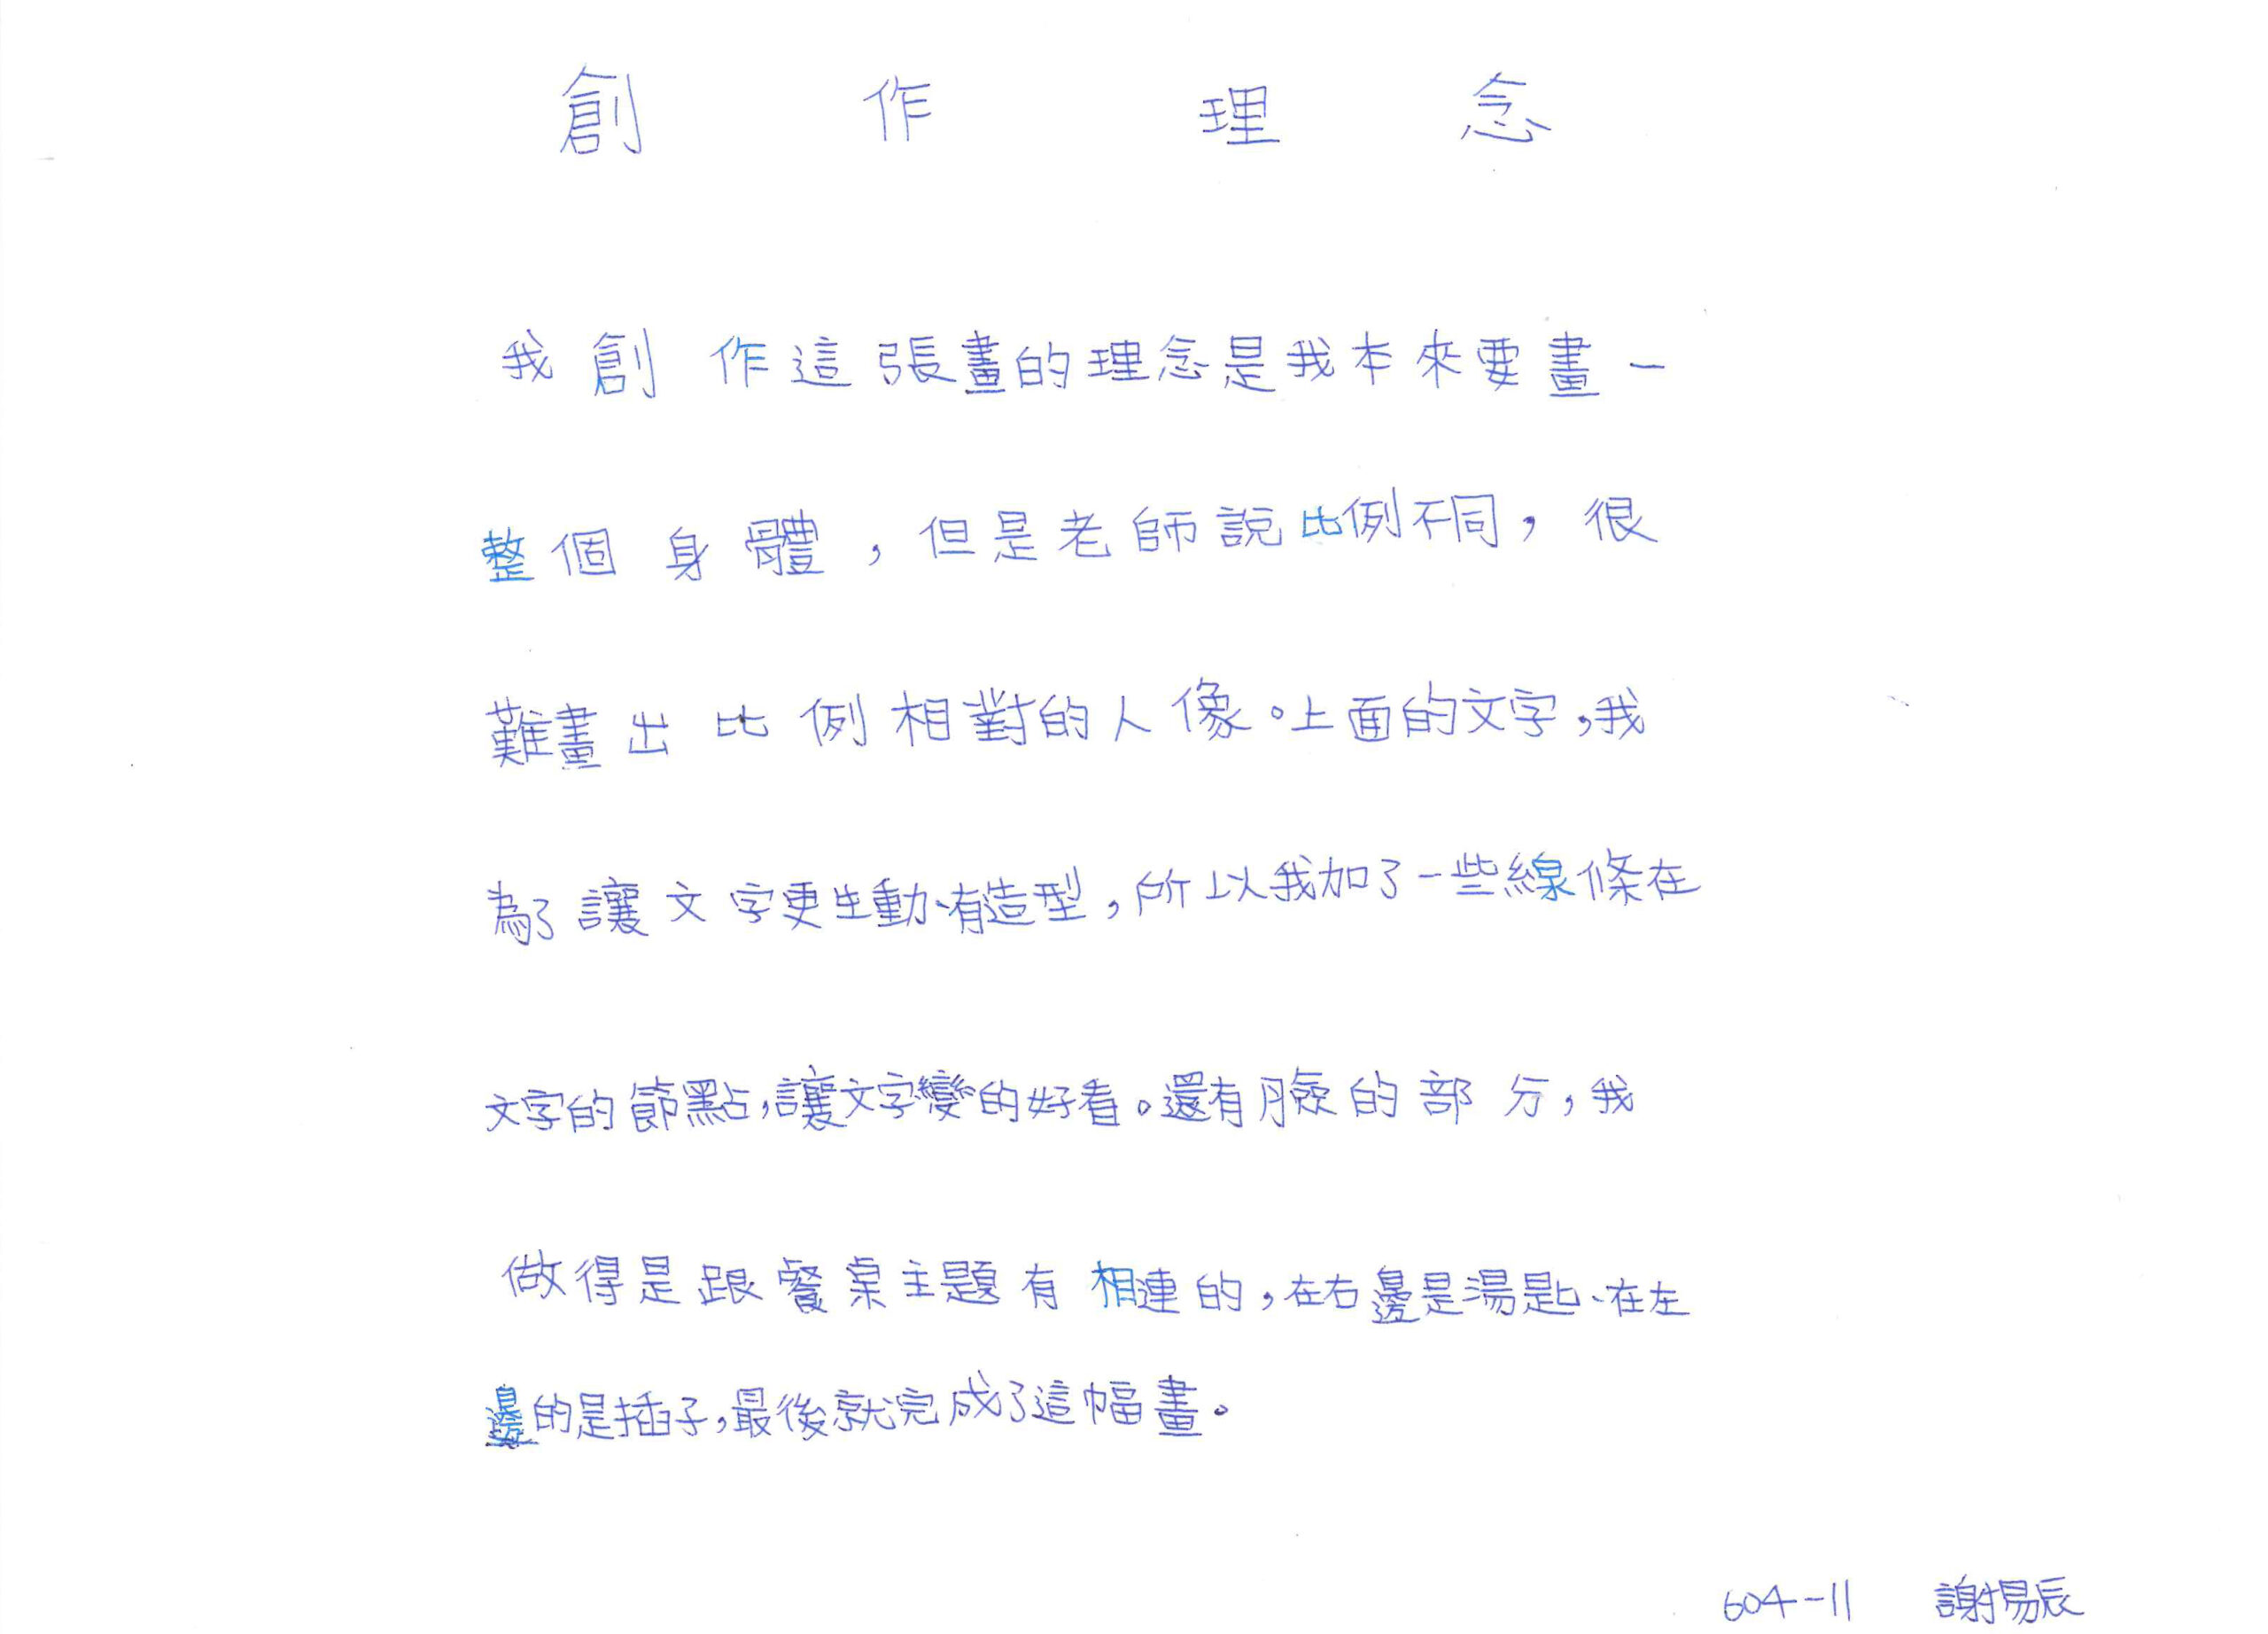 創作理念
我創作這張畫的理念是我本來要畫一
整個身體，但是老師說比例不同，很
難畫出比例相對的人像。上面的文字，我
為了讓文字更生動、有造型，所以我加了一些線條在
文字的節點，讓文字變的好看。還有臉的部分，我
做得是跟餐桌主題有相連的，在右邊是湯匙、在左
邊的是插子，最後就完成了這幅畫。
604-11 謝易辰